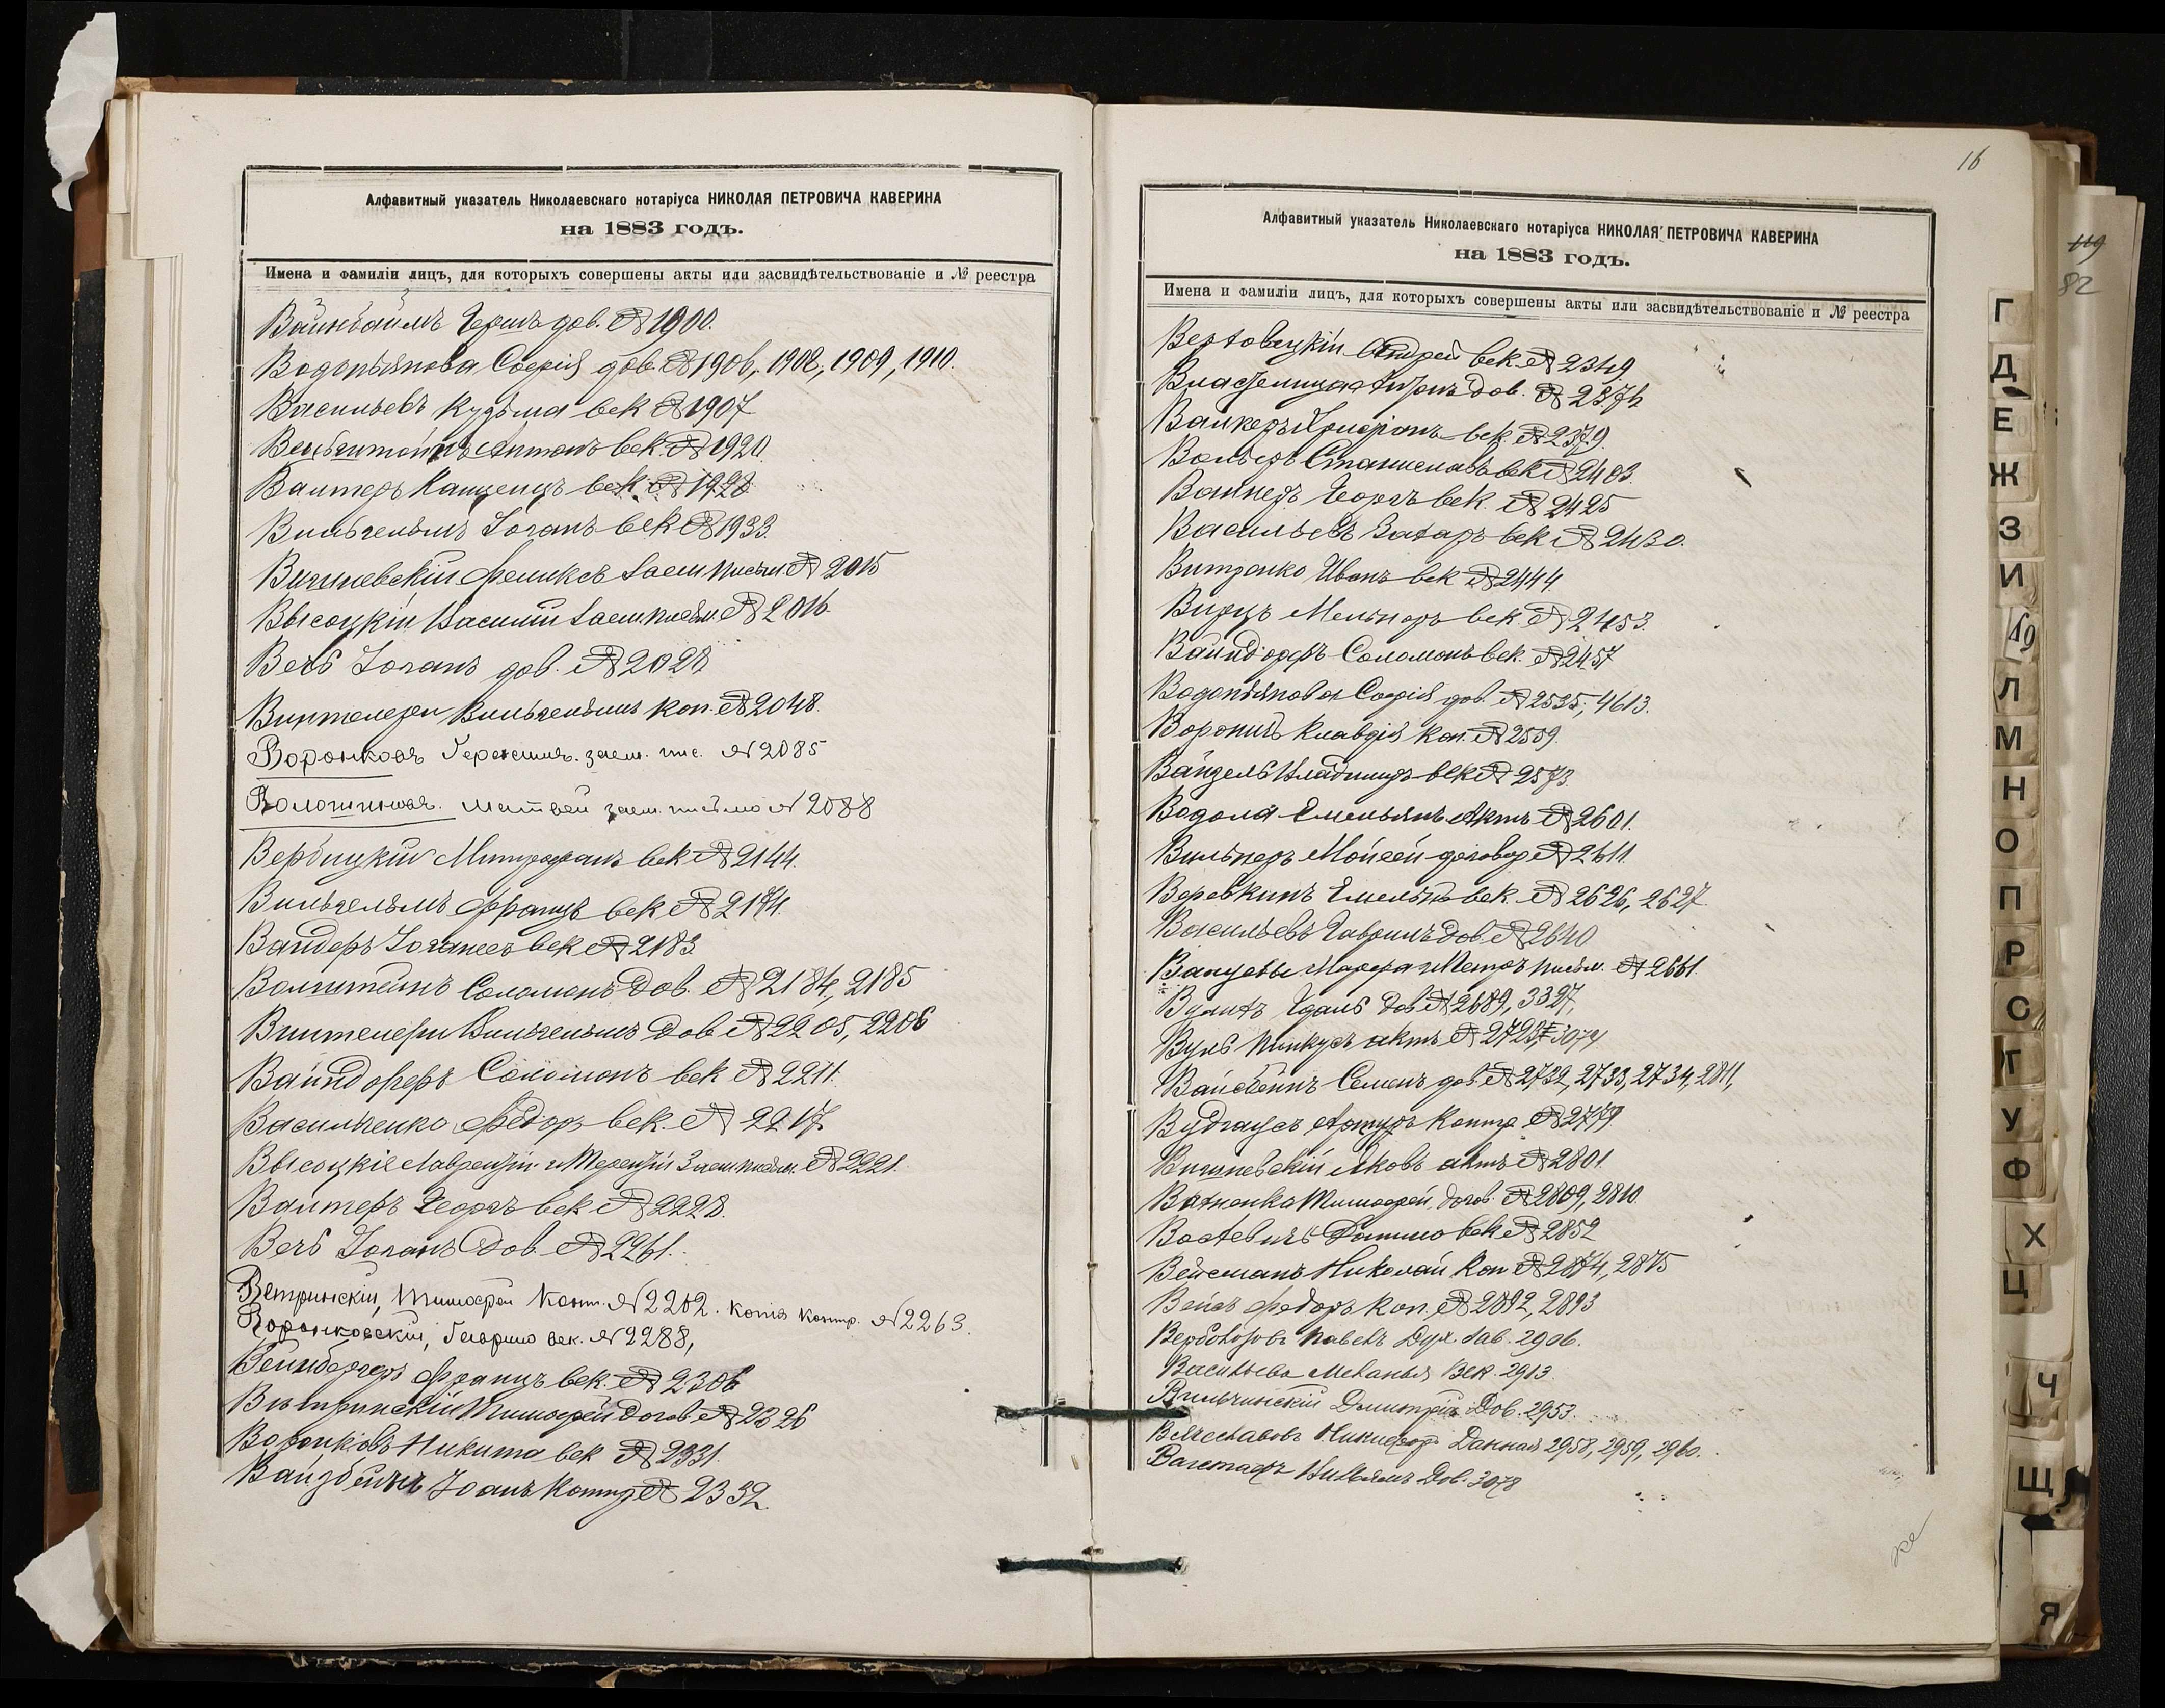 Алфавитный указатель Николаевскаго нотаріуса НИКОЛАЯ ПЕТРОВИЧА КАВЕРИНА
на 1883 годъ.
Имена и фамиліи лицъ, для которыхъ совершены акты или засвидѣтельствованіе и № реестра
Вайнбаумъ Гершъ дов. № 1900.
Водопьянова Софія дов. № 1906, 1908, 1909, 1910.
Васильевъ Кузьма век № 1907
Антонъ век. № 1920.
Валтеръ век. № 1928
Вильгельмъ Іоганъ век № 1933.
Вишневскій Феликсъ Заем письм. № 2015
Высоцкій Василій Заем письм. № 2016
Вегь Іоганъ дов. № 2028
Винтелери Вильгельмъ коп. № 2048.
Воронковъ Герасимъ. заем. пис. № 2085
Волошиновъ. Матвей заем. письмо № 2088
Вербицкій Митрофанъ век № 2144.
Вильгельмъ Францъ век № 2174.
Вандеръ Іоганесъ век № 2183.
Валштейнъ Соломонъ дов. № 2184, 2185
Винтелери Вильгельмъ дов № 2205, 2206
Вайндорфъ Соломонъ век № 2211.
Васильченко Федоръ век. № 2217
Высоцкіе Лаврентій и Терентій Заем письм. № 2221.
Валтеръ Георгъ век № 2228.
Вегь Іоганъ дов № 2261.
Ветринскій, Тимофей Конт. № 2262. копія контр. № 2263.
Воронковскій, Гаврило век. № 2288,
Вейнбергеръ Францъ век. № 2306
Вѣтринскій Тимофей догов. № 2326
Воронковъ Никита век № 2331.
Вайзбейнъ Іоанъ Контр № 2332.
16
Алфавитный указатель Николаевскаго нотаріуса НИКОЛАЯ ПЕТРОВИЧА КАВЕРИНА
на 1883 годъ.
Имена и фамиліи лицъ, для которыхъ совершены акты или засвидѣтельствованіе и № реестра
Андрей век. № 2349
дов. №
век. № 2379.
Станиславъ век № 2403.
Вагнеръ Георгъ век. № 2425
Васильевъ Захаръ век № 2430.
Витренко Иванъ век № 2444.
Вирцъ Мельхоръ век. № 2453.
Вайндорфъ Соломонъ век. № 2457
Водопьянова Софія дов. № 2535, 4613.
Вороничъ Клавдія коп. № 2559.
Владимиръ век № 2573.
Водола Емельянъ Актъ № 2601.
Вильнеръ Мойсей договор № 2611.
Веревкинъ Емельян век. № 2626, 2627.
Васильевъ Гаврилъ дов № 2640
Марфа и Петръ письм. № 2661.
дов № 2689, 3327,
Вуль Пинкусъ актъ № 3074
Вайсбейнъ Семенъ дов. № 2732, 2733, 2734, 2811,
Артуръ Контр. № 2779.
Вишневскій Яковъ актъ № 2801.
Тимофей догов. № 2809, 2810.
век № 2852
Вейсманъ Николай Коп № 2874, 2875
Вейсъ Федоръ коп. № 2892, 2893
Павелъ Дух. Зав. 2906.
Васильева Меланья Век. 2913.
Вильчинскій Дмитрій Дов. 2953.
Вячеславовъ Никифоръ Данная 2958, 2959, 2960.
Вильямъ Дов. 3078
119
82
Г
Д
Е
Ж
З
И
Л
М
Н
О
П
Р
С
Т
У
Ф
Х
Ц
Ч
Щ
Я